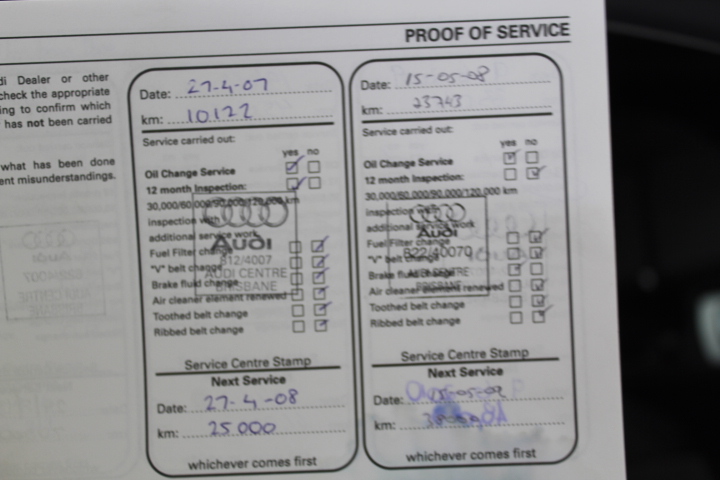 PROOF OF SERVICE
di Dealer or other
check the appropriate
ing to confirm which
has not been carried
what has been done
ent misunderstandings.
Date: 27-4-07
km: 10122
Service carried out:
yes no
Oil Change Service
12 month Inspection:
30,000/60,000/90,000/120,000 km
inspection with
additional service work
AUDI
Fuel Filter change
812/4007
"V" belt change
AUDI CENTRE
Brake fluid change
BRISBANE
Air cleaner element renewed
Toothed belt change
Ribbed belt change
Service Centre Stamp
Next Service
Date: 27-4-08
km: 25 000
whichever comes first
Date: 15-05-08
km: 23743
Service carried out:
yes no
Oil Change Service
12 month Inspection:
30,000/60,000/90,000/120,000 km
inspection with
additional service work
AUDI
Fuel Filter change
822/40070
"V" belt change
Brake fluid change
BRISBANE
Air cleaner element renewed
Toothed belt change
Ribbed belt change
Service Centre Stamp
Next Service
Date:
km:
whichever comes first